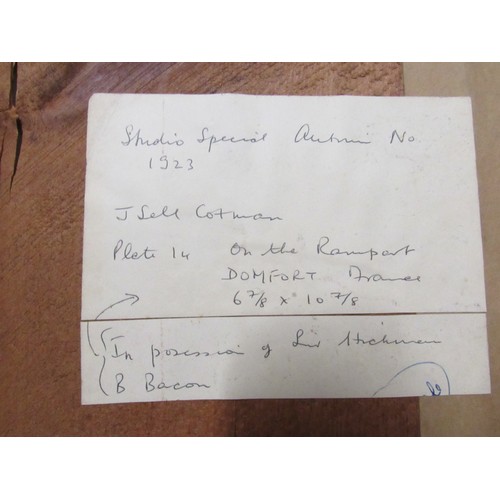 Studio Special Autumn No
1923
J Sell Cotman
Plate 14 On the Rampart
DOMFORT France
6 7/8 x 10 7/8
In posession of Sir Hickman
B Bacon